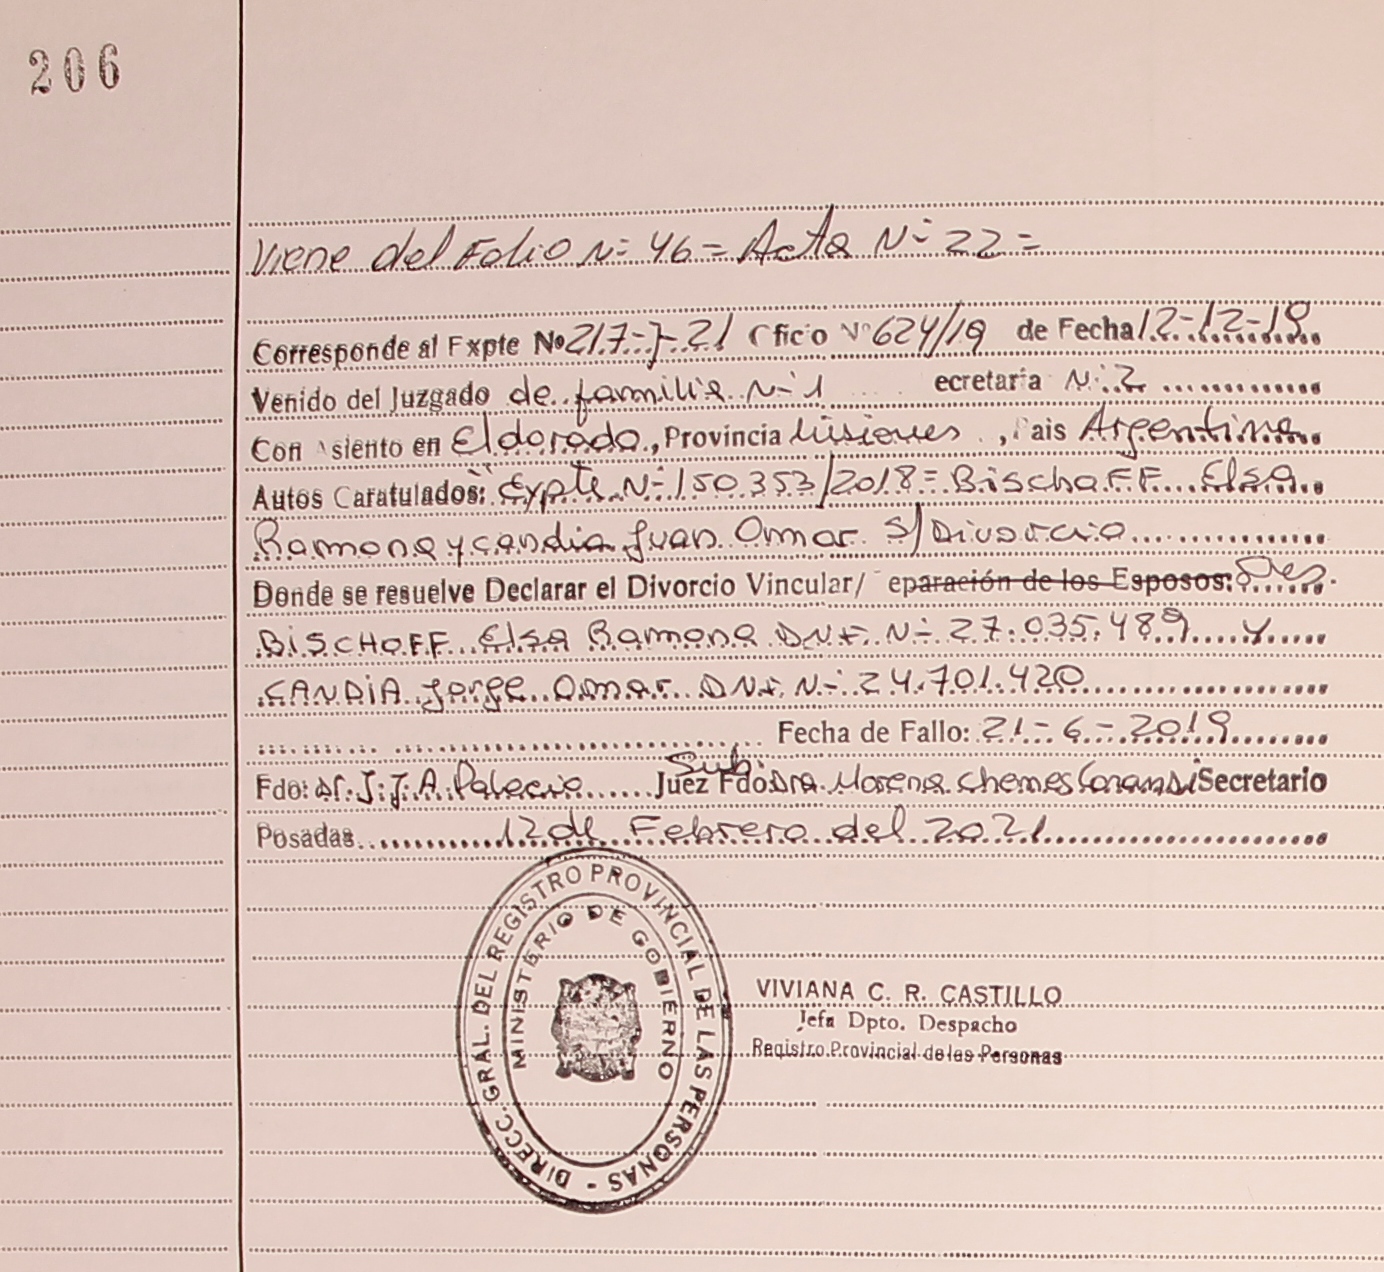 206
Viene del Folio Nº 46 = Acta Nº 22 =
Corresponde al Expte Nº 217-J-21 Oficio Nº 624/19 de Fecha 12-12-19
Venido del Juzgado de familia Nº 1 ecretaria Nº 2
Con Asiento en Eldorado, Provincia Misiones, Pais Argentina
Autos Caratulados: "Expte Nº 150.353/2018 = Bischoff Elsa
Ramona y candia Juan Omar S/ Divorcio
Donde se resuelve Declarar el Divorcio Vincular/ eparación de los Esposos:
BISCHOFF Elsa Ramona DNI. Nº 27.035.489 y
CANDIA Jorge Omar DNI. Nº 24.701.420
Fecha de Fallo: 21-6-2019
Fdo: Dr. J.J.A. Palacio Juez Sub. Fdo Dra. Morena Chemes Secretario
Posadas 12 de Febrero del 2021
DIRECC. GRAL. DEL REGISTRO PROVINCIAL DE LAS PERSONAS -
MINISTERIO DE GOBIERNO
VIVIANA C. R. CASTILLO
Jefa Dpto. Despacho
Registro Provincial de las Personas